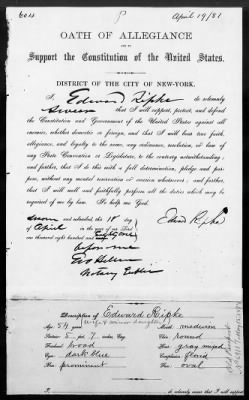 April 19/81
OATH OF ALLEGIANCE
AND TO
Support the Constitution of the United States.
DISTRICT OF THE CITY OF NEW-YORK.
I, Edward Ripke do solemnly
swear that I will support, protect, and defend
the Constitution and Government of the United States against all
enemies, whether domestic or foreign, and that I will bear true faith,
allegiance, and loyalty to the same, any ordinance, resolution, or law of
any State Convention or Legislature, to the contrary notwithstanding;
and further, that I do this with a full determination, pledge and pur-
pose, without any mental reservation or evasion whatsoever; and further,
that I will well and faithfully perform all the duties which may be
required of me by law. So help me God.
Edward Ripke
Sworn and subscribed this 18 day
of April in the year of our Lord
one thousand eight hundred and Eighty one
before me
Notary Public
Description of Edward Ripke
wife & minor daughter
Age, 54
Stature, 5 ft 7 inches, Eng.
Forehead, broad
Eyes, dark blue
Nose, prominent
Mouth, medium
Chin, round
Hair, gray mixed
Complexion, florid
Face, oval
I, do solemnly swear that I will support,